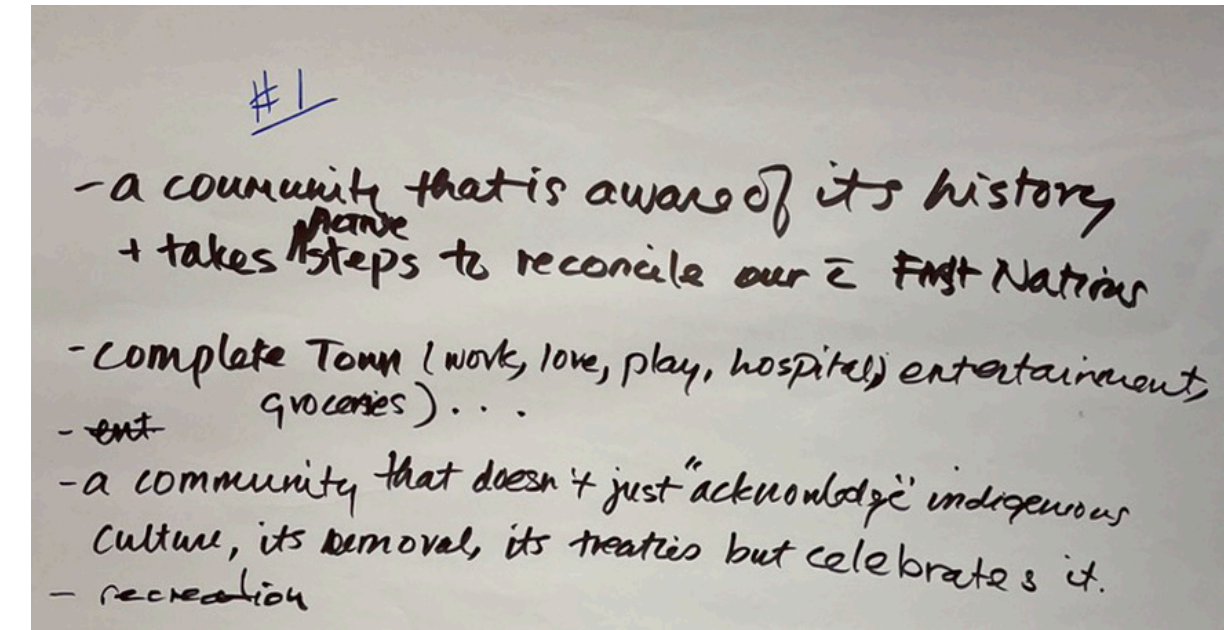 #1
- a community that is aware of its history
+ takes Active steps to reconcile our c̄ First Nations
- complete Town (work, love, play, hospital, entertainment,
groceries)...
- ent
- a community that doesn't just "acknowledge" indigenous
culture, its removal, its treaties but celebrates it.
- recreation